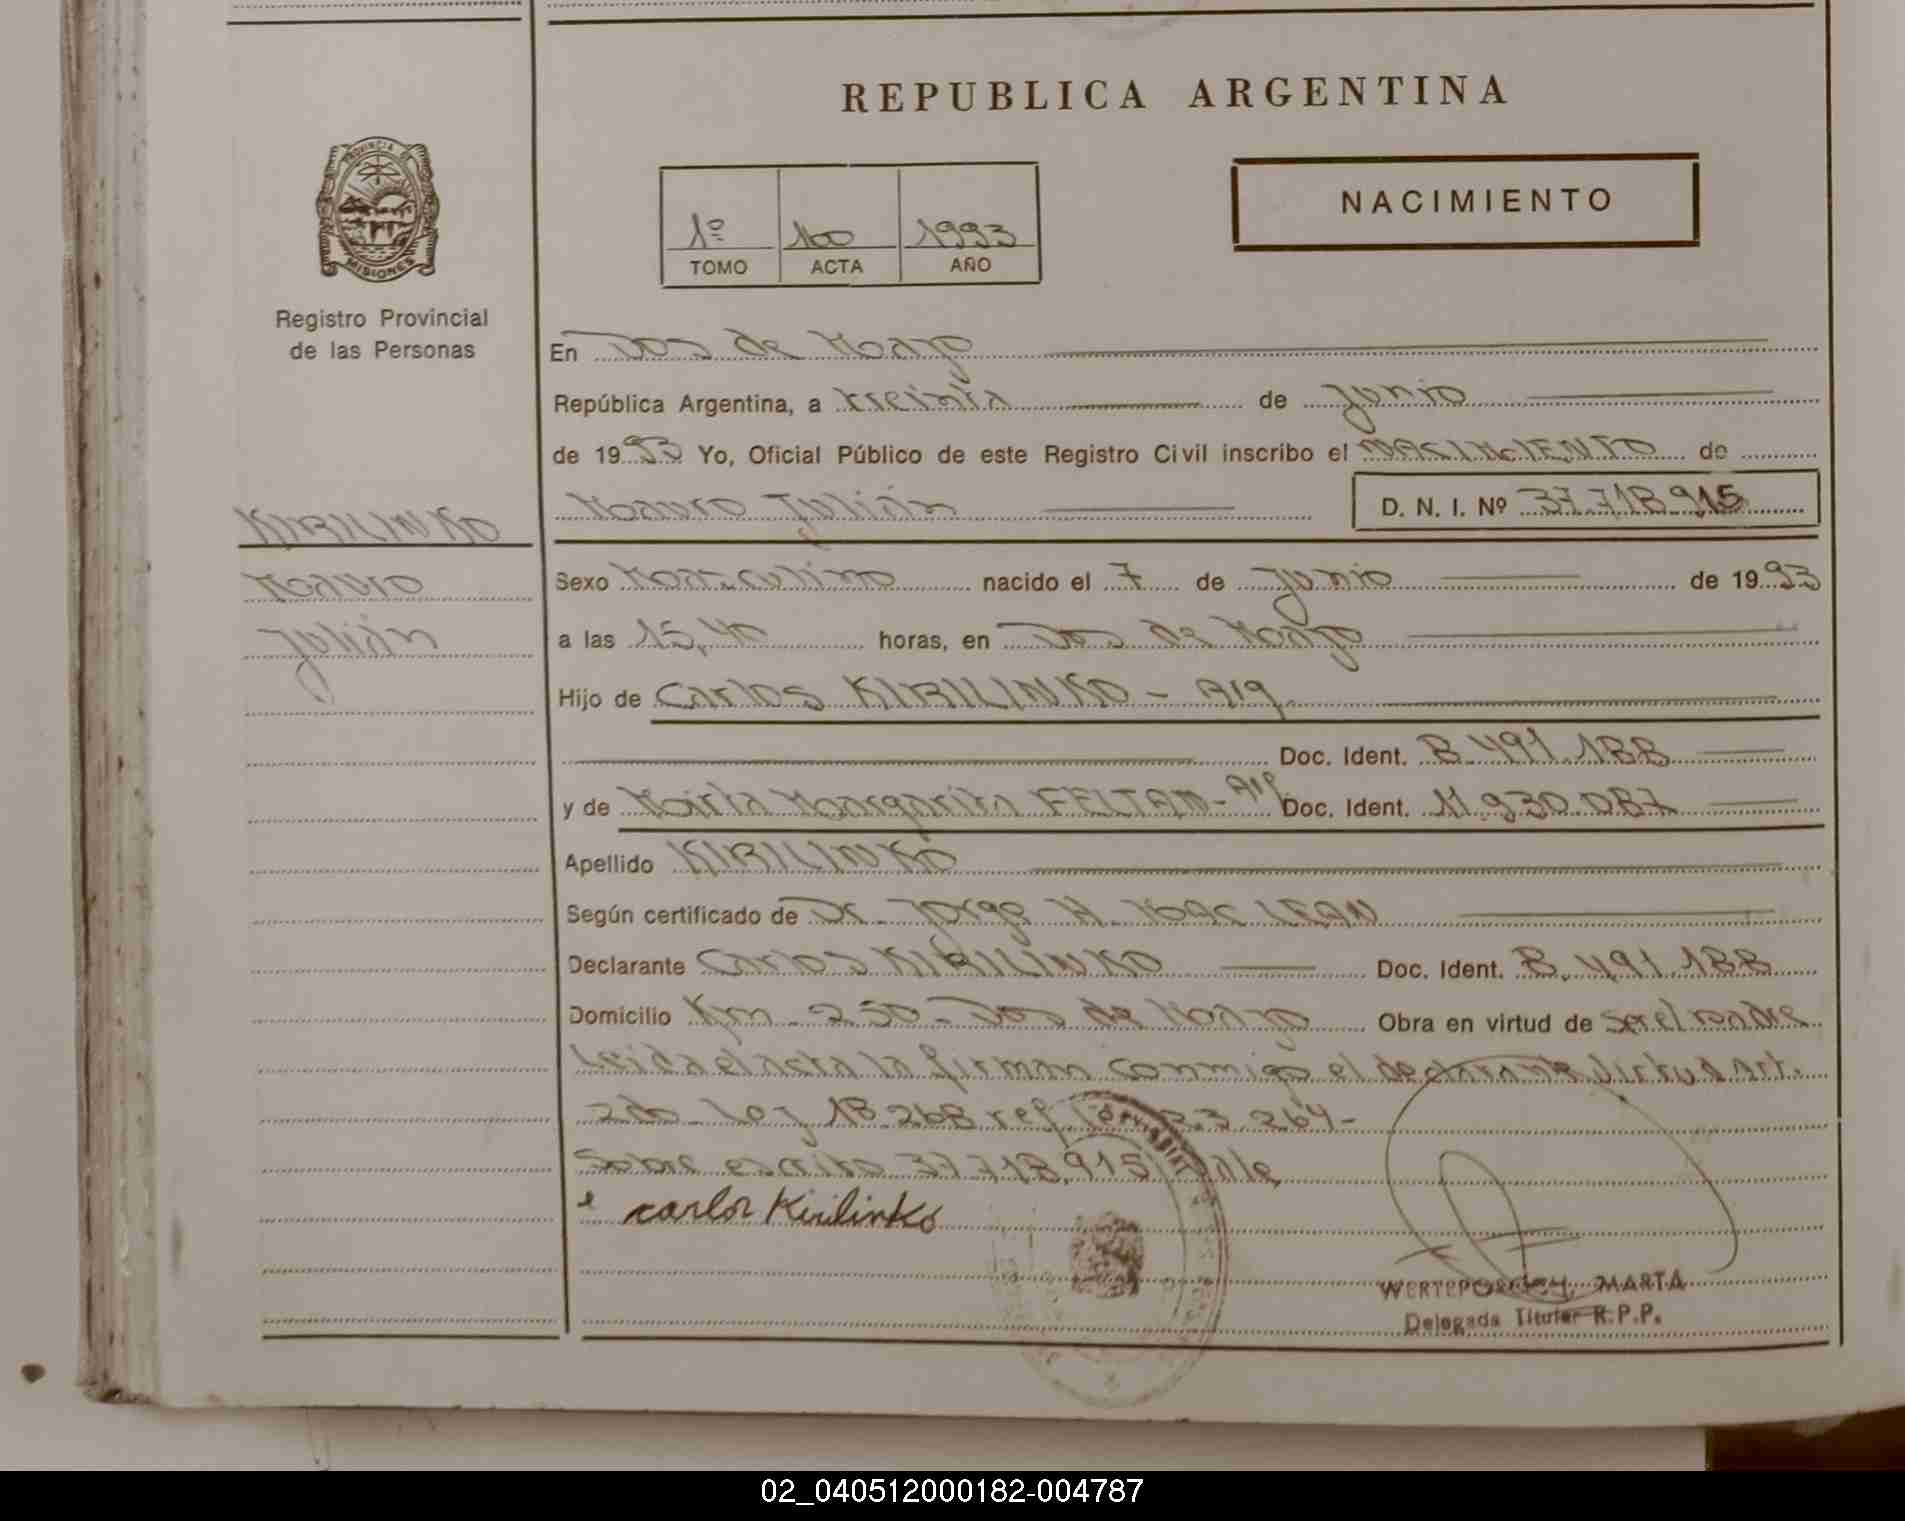 REPUBLICA ARGENTINA
PROVINCIA DE
MISIONES
Registro Provincial
de las Personas
1º 100 1993
TOMO ACTA AÑO
NACIMIENTO
En Dos de Mayo
República Argentina, a treinta de junio
de 1993 Yo, Oficial Público de este Registro Civil inscribo el NACIMIENTO de
Mauro Julián D. N. I. Nº 37.718.915
KIRILINKO
Mauro
Julián
Sexo Masculino nacido el 7 de junio de 1993
a las 15,40 horas, en Dos de Mayo
Hijo de Carlos KIRILINKO - Arg.
Doc. Ident. 8.491.188
y de Mirta Margarita FELTAN - Arg. Doc. Ident. 11.930.087
Apellido KIRILINKO
Según certificado de Dr. Jorge H. Mac LEAN
Declarante Carlos KIRILINKO Doc. Ident. 8.491.188
Domicilio Km. 250 - Dos de Mayo Obra en virtud de ser el padre
leida el acta la firman conmigo el declarante virtud art.
2do ley 18.268 ref. ley 23.264-
Sobre escrito 37.718.915 Vale
carlos Kirilinko
WERTEPORCHY, MARTA
Delegada Titular R.P.P.
02_040512000182-004787